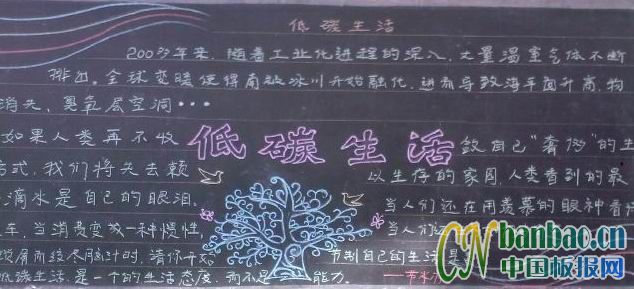 低碳生活
200多年来，随着工业化进程的深入，大量温室气体不断
排出，全球变暖使得南极冰川开始融化，进而导致海平面升高，物
消失，臭氧层空洞···
如果人类再不收
低碳生活
敛自己“奢侈”的生
方式，我们将失去赖
以生存的家园，人类看到的最
滴水是自己的眼泪。
当人们还在用羡慕的眼神看
车，当消费变成一种惯性，
当人们
节制自己的生活是
低碳生活，是一个的生活态度，而不是 能力。
CNbanbao.cn
中国板报网